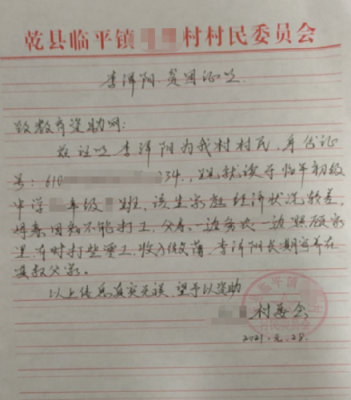 乾县临平镇 村村民委员会
李泽阳贫困证明
致教育资助网:
兹证明李泽阳为我村村民,身份证
号:610 34.,现就读于临平初级
中学 年级 班,该生家庭经济状况较差,
母亲 因病不能打工,父亲一边务农一边照顾家
里,有时打些零工,收入微薄,李泽阳长期寄养在
其叔父家。
以上信息真实无误,望予以资助
村委会
2021. .28.